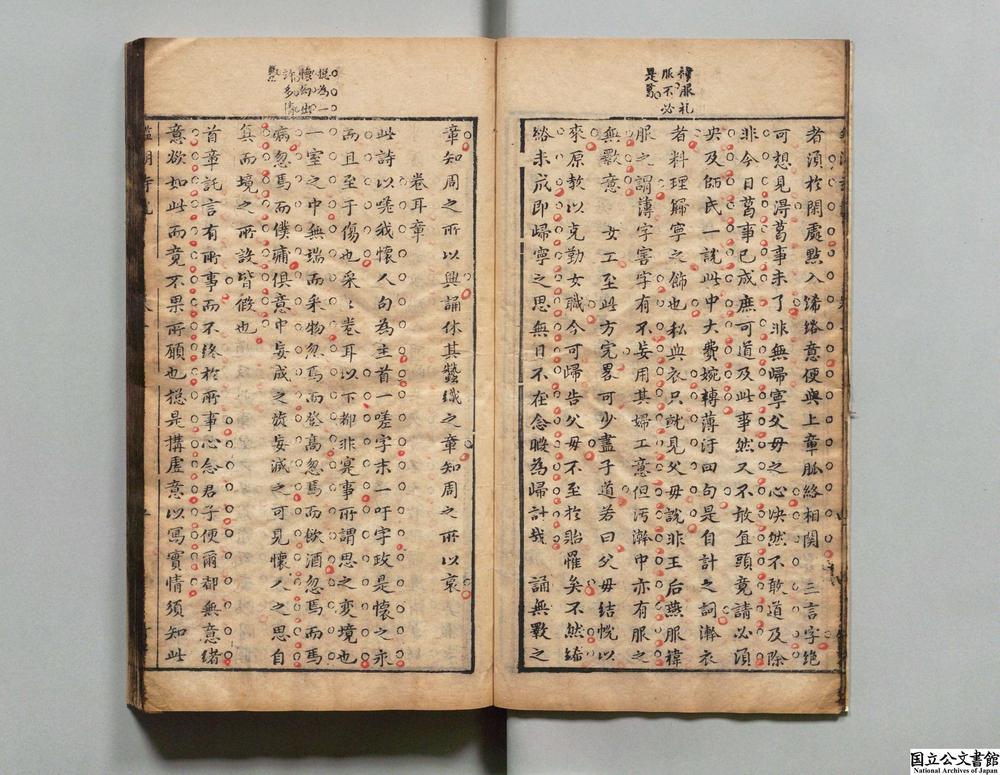 褘服礼
服不必
是褻
者須於閑處點入絺綌意便與上章脉絡相関　三言字絶
可想見淂葛事未了非無㱕寧父毋之心怏然不敢道及除
非今日葛事已成庶可道及此事然又不敢直頭竟請必須
央及師氏一說此中大費婉轉薄汙囬句是自計之詞澣衣
者料理歸寧之飾也私與衣只就見父毋說非王后燕服褘
服之謂薄字害字有不妄用其婦工意但汚澣中亦有服之
無斁意　女工至此方完畧可少盡子道若曰父毋結帨以
來原教以克勤女職今可歸告父毋不至於貽罹矣不然絺
綌未成即㱕寧之思無日不在念暇為㱕計㢤　誦無斁之
總為一
懷勾出
許多情
章知周之所以興誦休其蠶織之章知周之所以衰
卷耳章
此詩以嗟我懷人句為主首一嗟字末一吁字政是懷之永
而且至于傷也采〻卷耳以下都非寔事所謂思之変境也
一室之中無端而采物忽焉而登高忽焉而飲酒忽焉而馬
病忽焉而僕痡俱意中妄成之旋妄滅之可見懷人之思自
真而境之所設皆假也
首章託言有所事而不終於所事心念君子便爾都無意緒
意欲如此而竟不果所願也揔是搆虛意以寫實情須知此
国立公文書館
National Archives of Japan